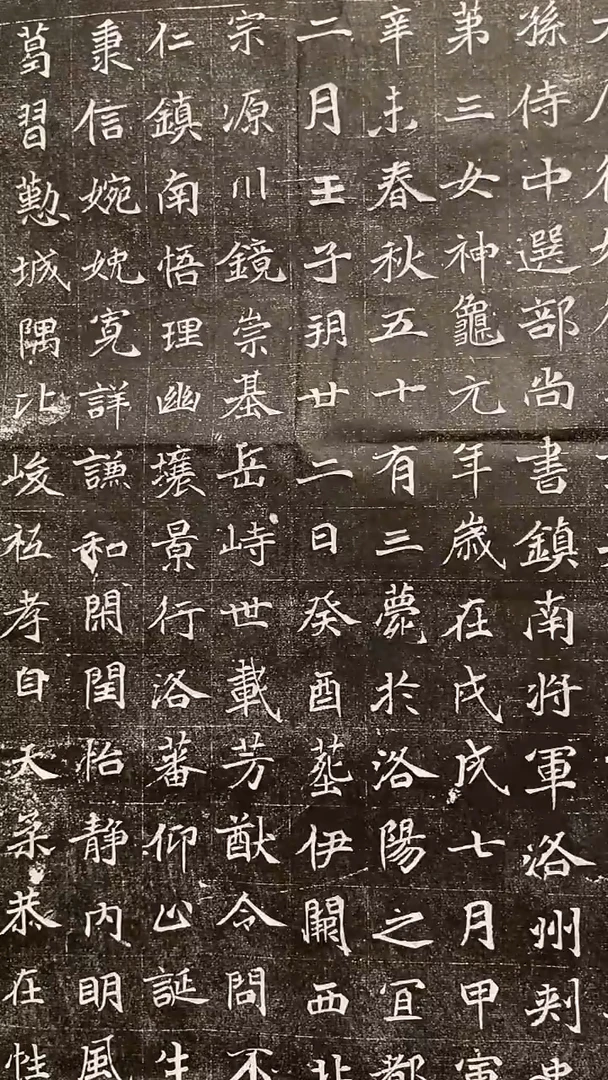 孫侍中選部尚書鎮南将軍洛州刾史
第三女神龜元年歲在戊戌七月甲寅
辛未春秋五十有三薨於洛陽之宜都
二月壬子朔廿二日癸酉塟伊闕西北
宗源川鏡崇基岳峙世載芳猷令問不
仁鎮南悟理幽壤景行洛蕃仰止誕生
秉信婉娩寬詳謙和閑閨怡静内明風
葛習懃城隅比峻祗孝自天柔恭在性